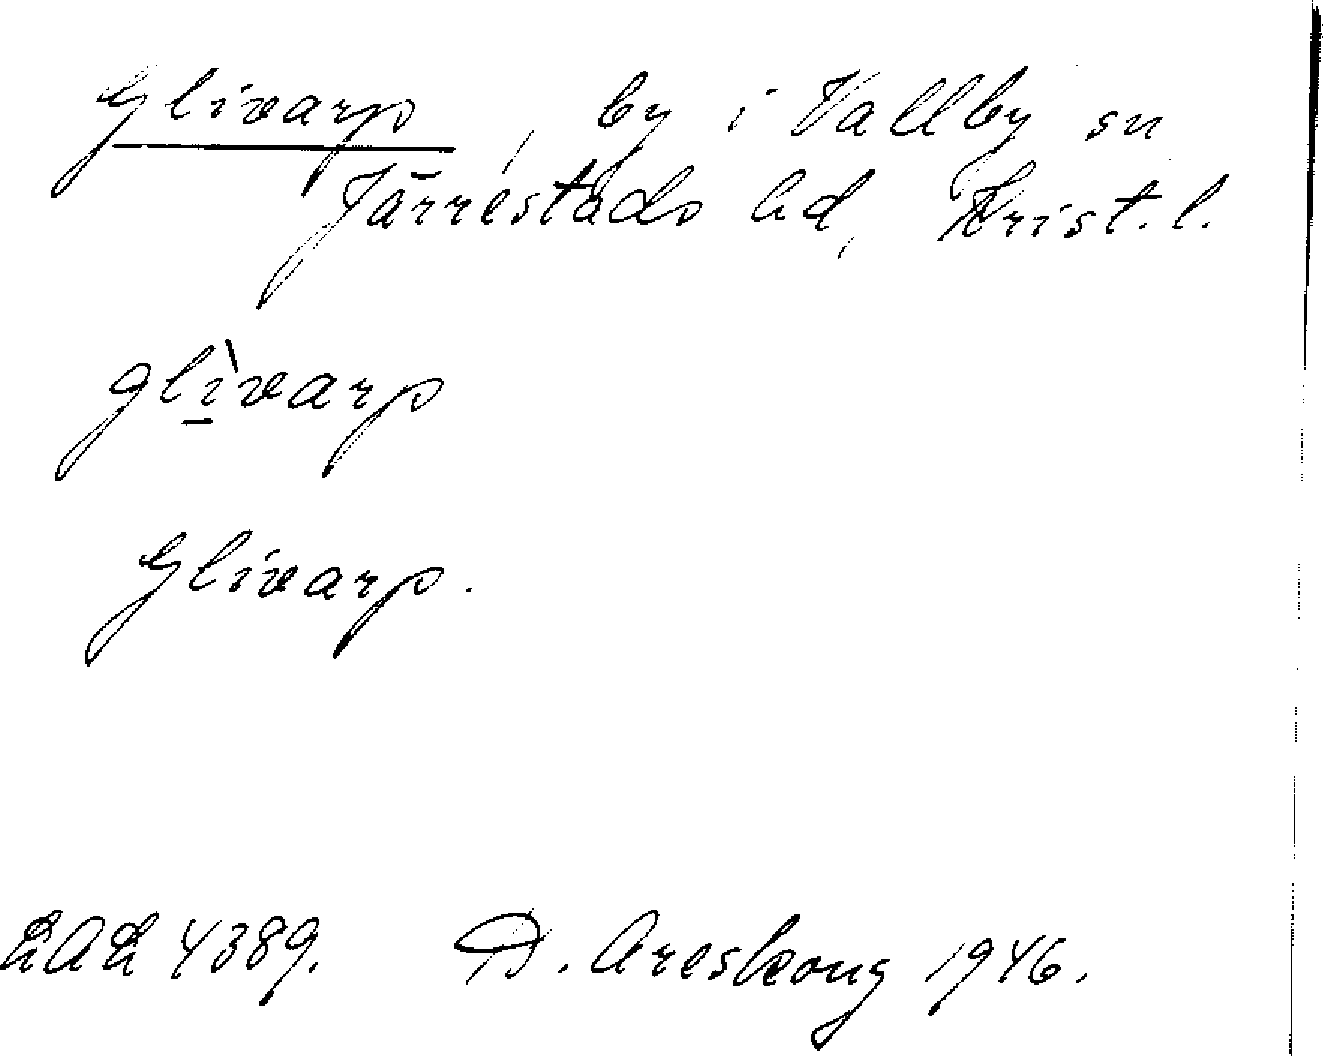 Glivarp, by i Vallby sn
Järrestads hd, Krist. l.
glì̱varp
Glivarp.
LAL 4389. D. Areskoug 1946.